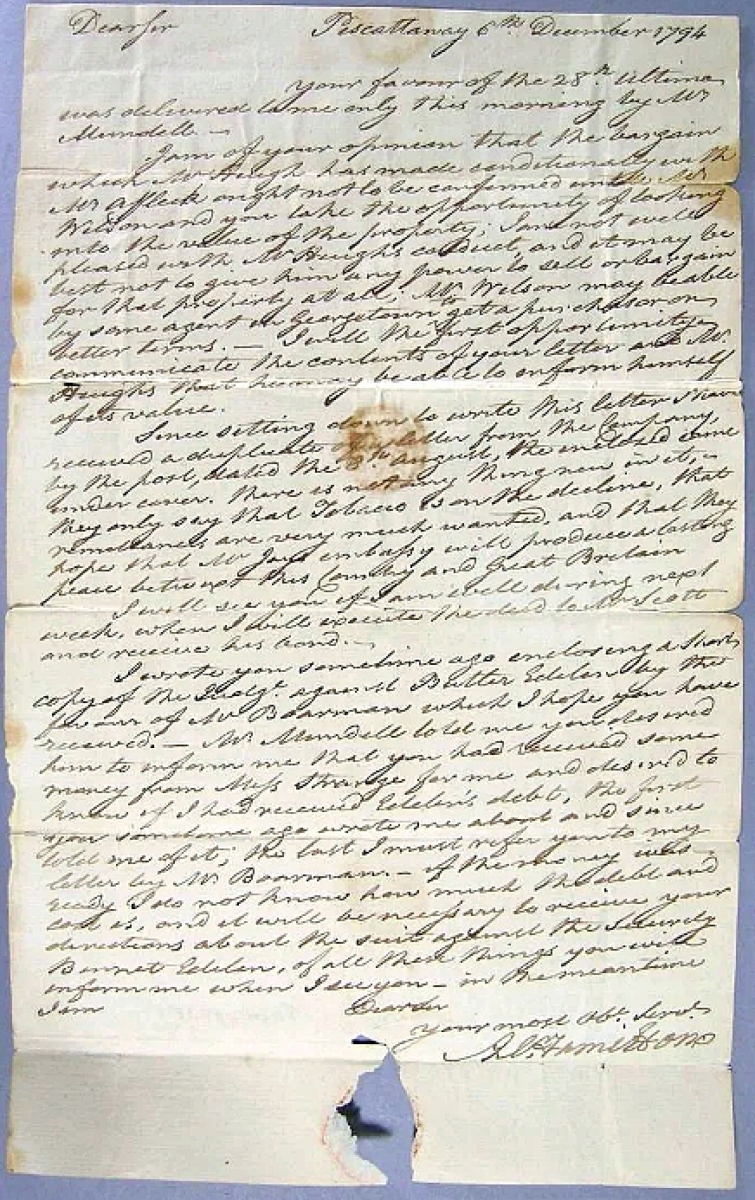 Dear Sir Piscattaway 6th December 1794
your favour of the 28th Ultimo
was delivered to me only this morning by Mr
Mundell. —
I am of your opinion that the bargain
which Mr Heugh has made conditionally with
Mr Afleck ought not to be confirmed untill Mr
Wilson and you take the opportunity of looking
into the value of the property; I am not well
pleased with Mr Heughs conduct, and it may be
best not to give him any power to sell or bargain
for that property at all; Mr Wilson may be able
by some agent in Georgetown to get a purchasor on
better terms. — I will the first opportunity
communicate the contents of your letter and Mr
Heughs that he may be able to inform himself
of its value.
Since setting down to write this letter I have
received a duplicate of a letter from the Company
by the post, dated the 8th August, the inclosed came
under cover. There is not any thing new in it,
they only say that Tobacco is on the decline, that
remittances are very much wanted, and that they
hope that Mr Jays embassy will produce a lasting
peace betwixt this Country and Great Britain
I will see you if I am well during next
week, when I will execute the deed to Mr Scott
and receive his bond. —
I wrote you sometime ago enclosing a short
copy of the Judgt. against Butler Edelen by the
favour of Mr Boarman which I hope you have
received. — Mr Mundell told me you desired
him to inform me that you had received some
money from Miss Strange for me and desired to
know if I had received Edelen's debt, the first
you sometime ago wrote me about and since
told me of it; the last I must refer you to my
letter by Mr Boarman. — if the money was
ready I do not know how much the debt and
cost is, and it will be necessary to receive your
directions about the suit against the Security
Bennet Edelen, of all these things you will
inform me when I see you — in the meantime
I am Dear Sir
your most Obt. Servt.
Alexr. Hamilton